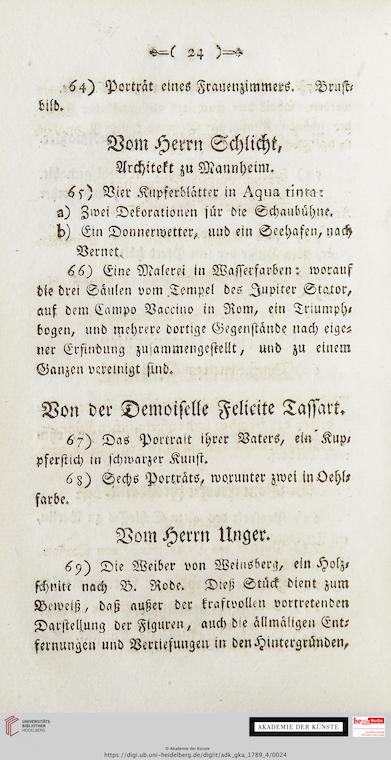 ( 24 )
64) Porträt eines Frauenzimmers. Brust-
bild.
Vom Herrn Schlicht,
Architekt zu Mannheim.
65) Vier Kupferblätter in Aqua tinta:
a) Zwei Dekorationen für die Schaubühne.
b) Ein Donnerwetter, und ein Seehafen, nach
Vernet.
66) Eine Malerei in Wasserfarben: worauf
die drei Säulen vom Tempel des Jupiter Stator,
auf dem Campo Vaccino in Rom, ein Triumph-
bogen, und mehrere dortige Gegenstände nach eige-
ner Erfindung zusammengestellt, und zu einem
Ganzen vereinigt sind.
Von der Demoiselle Felicite Tassart.
67) Das Portrait ihrer Vaters, ein Kup-
pferstich in schwarzer Kunst.
68) Sechs Porträts, worunter zwei in Oehl-
farbe.
Vom Herrn Unger.
69) Die Weiber von Weinsberg, ein Holz-
schnitt nach B. Rode. Dieß Stück dient zum
Beweiß, daß außer der kraftvollen vortretenden
Darstellung der Figuren, auch die allmäligen Ent-
fernungen und Vertiefungen in den Hintergründen,
UNIVERSITÄTS-
BIBLIOTHEK
HEIDELBERG
AKADEMIE DER KÜNSTE
be Berlin
© Akademie der Künste
https://digi.ub.uni-heidelberg.de/diglit/adk_gka_1789_4/0024